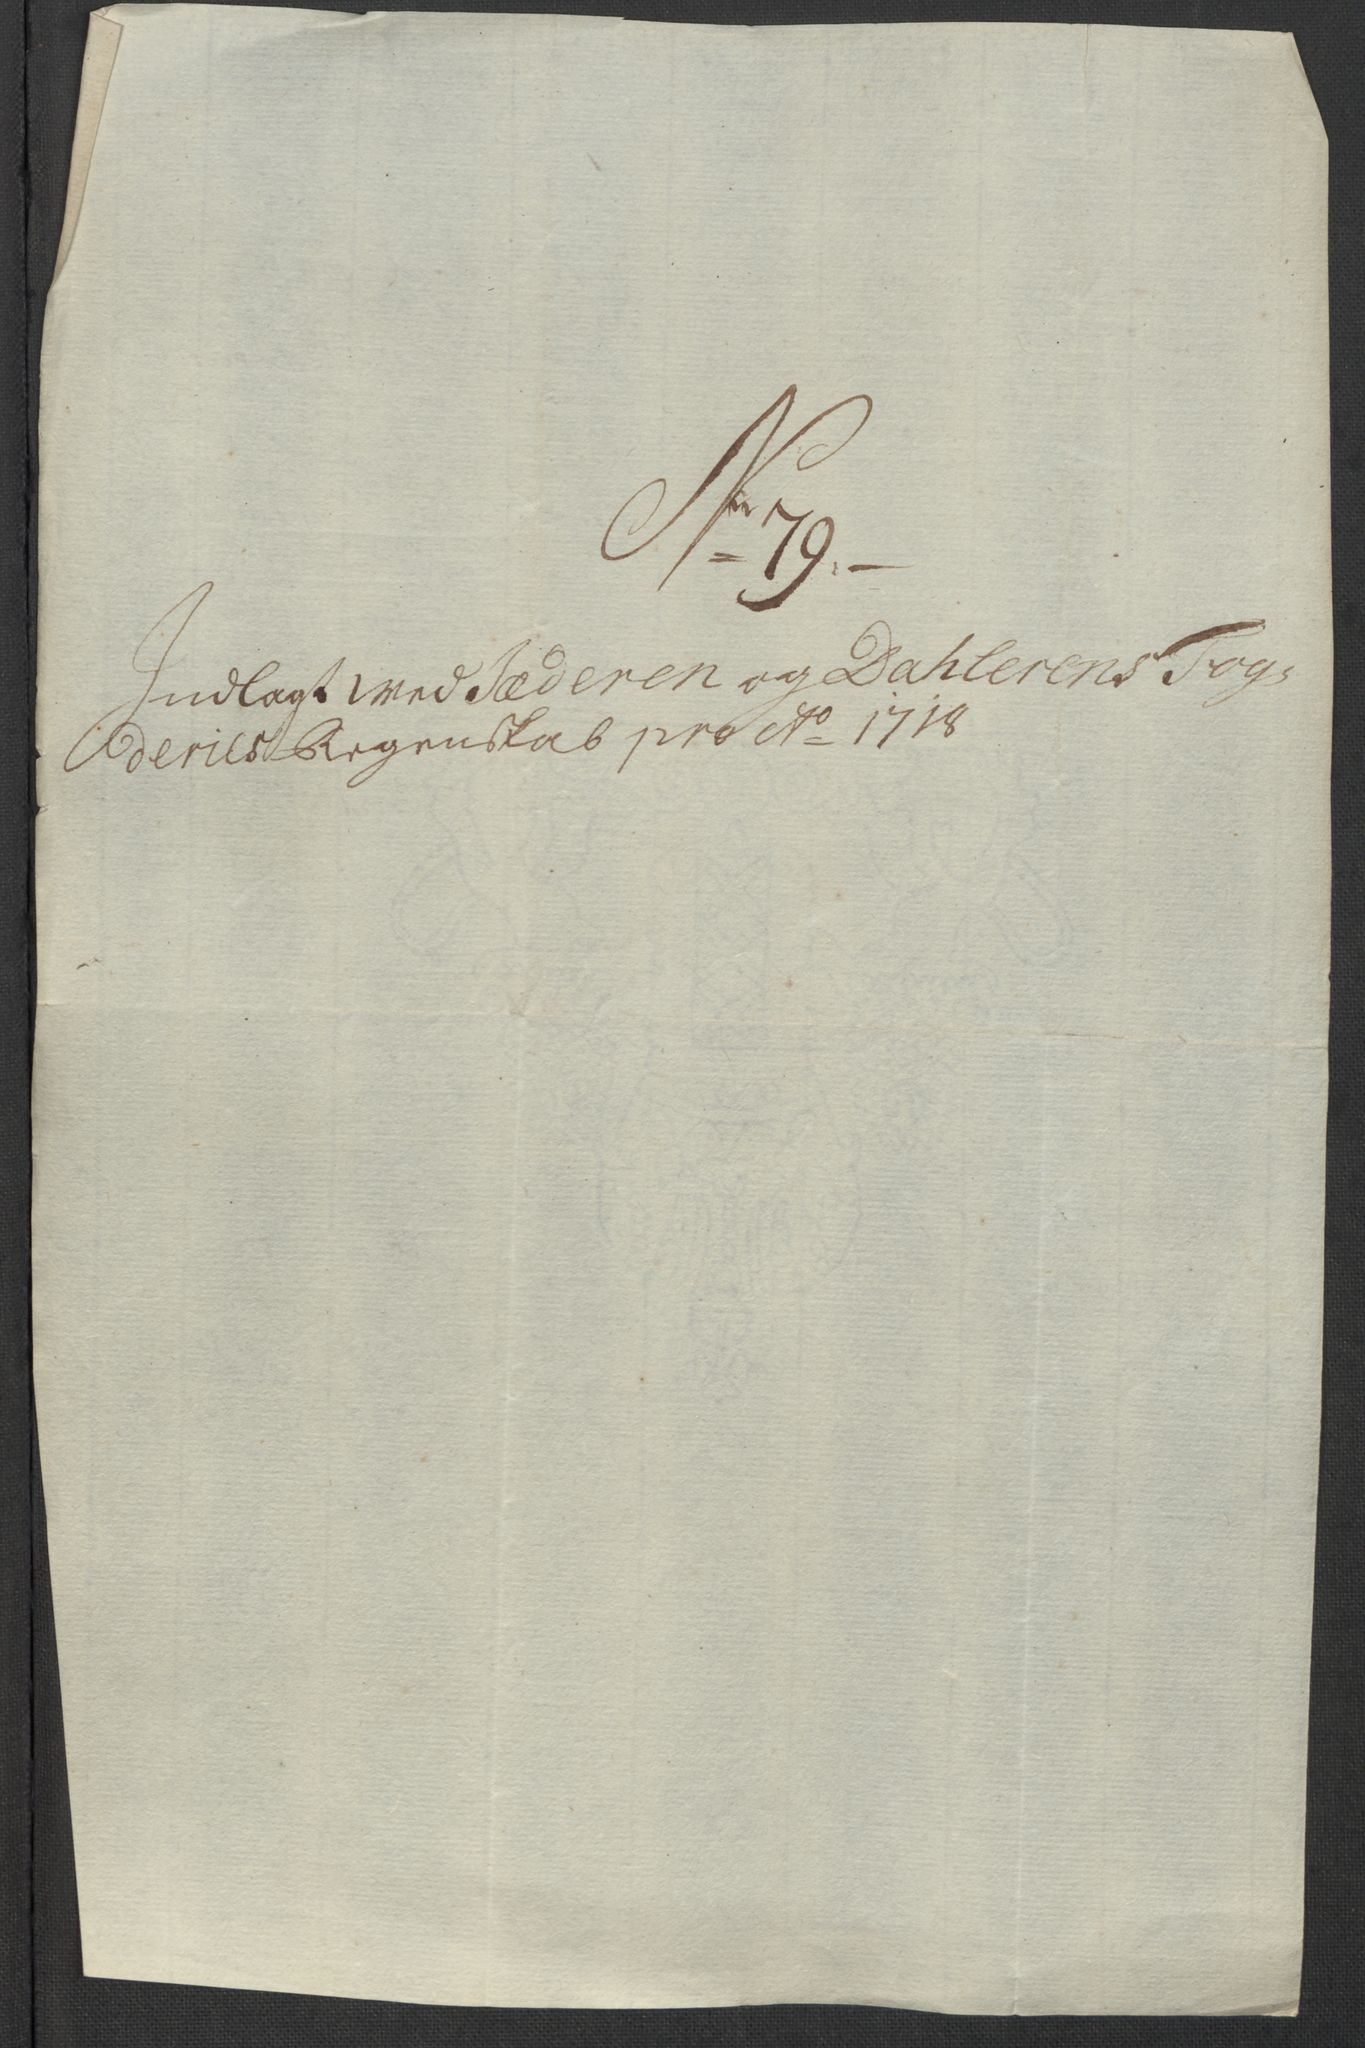 No 79.
Indlagt wed Jæderen og Dahlerens Fog-
deries Regenskab pro Ao 1718